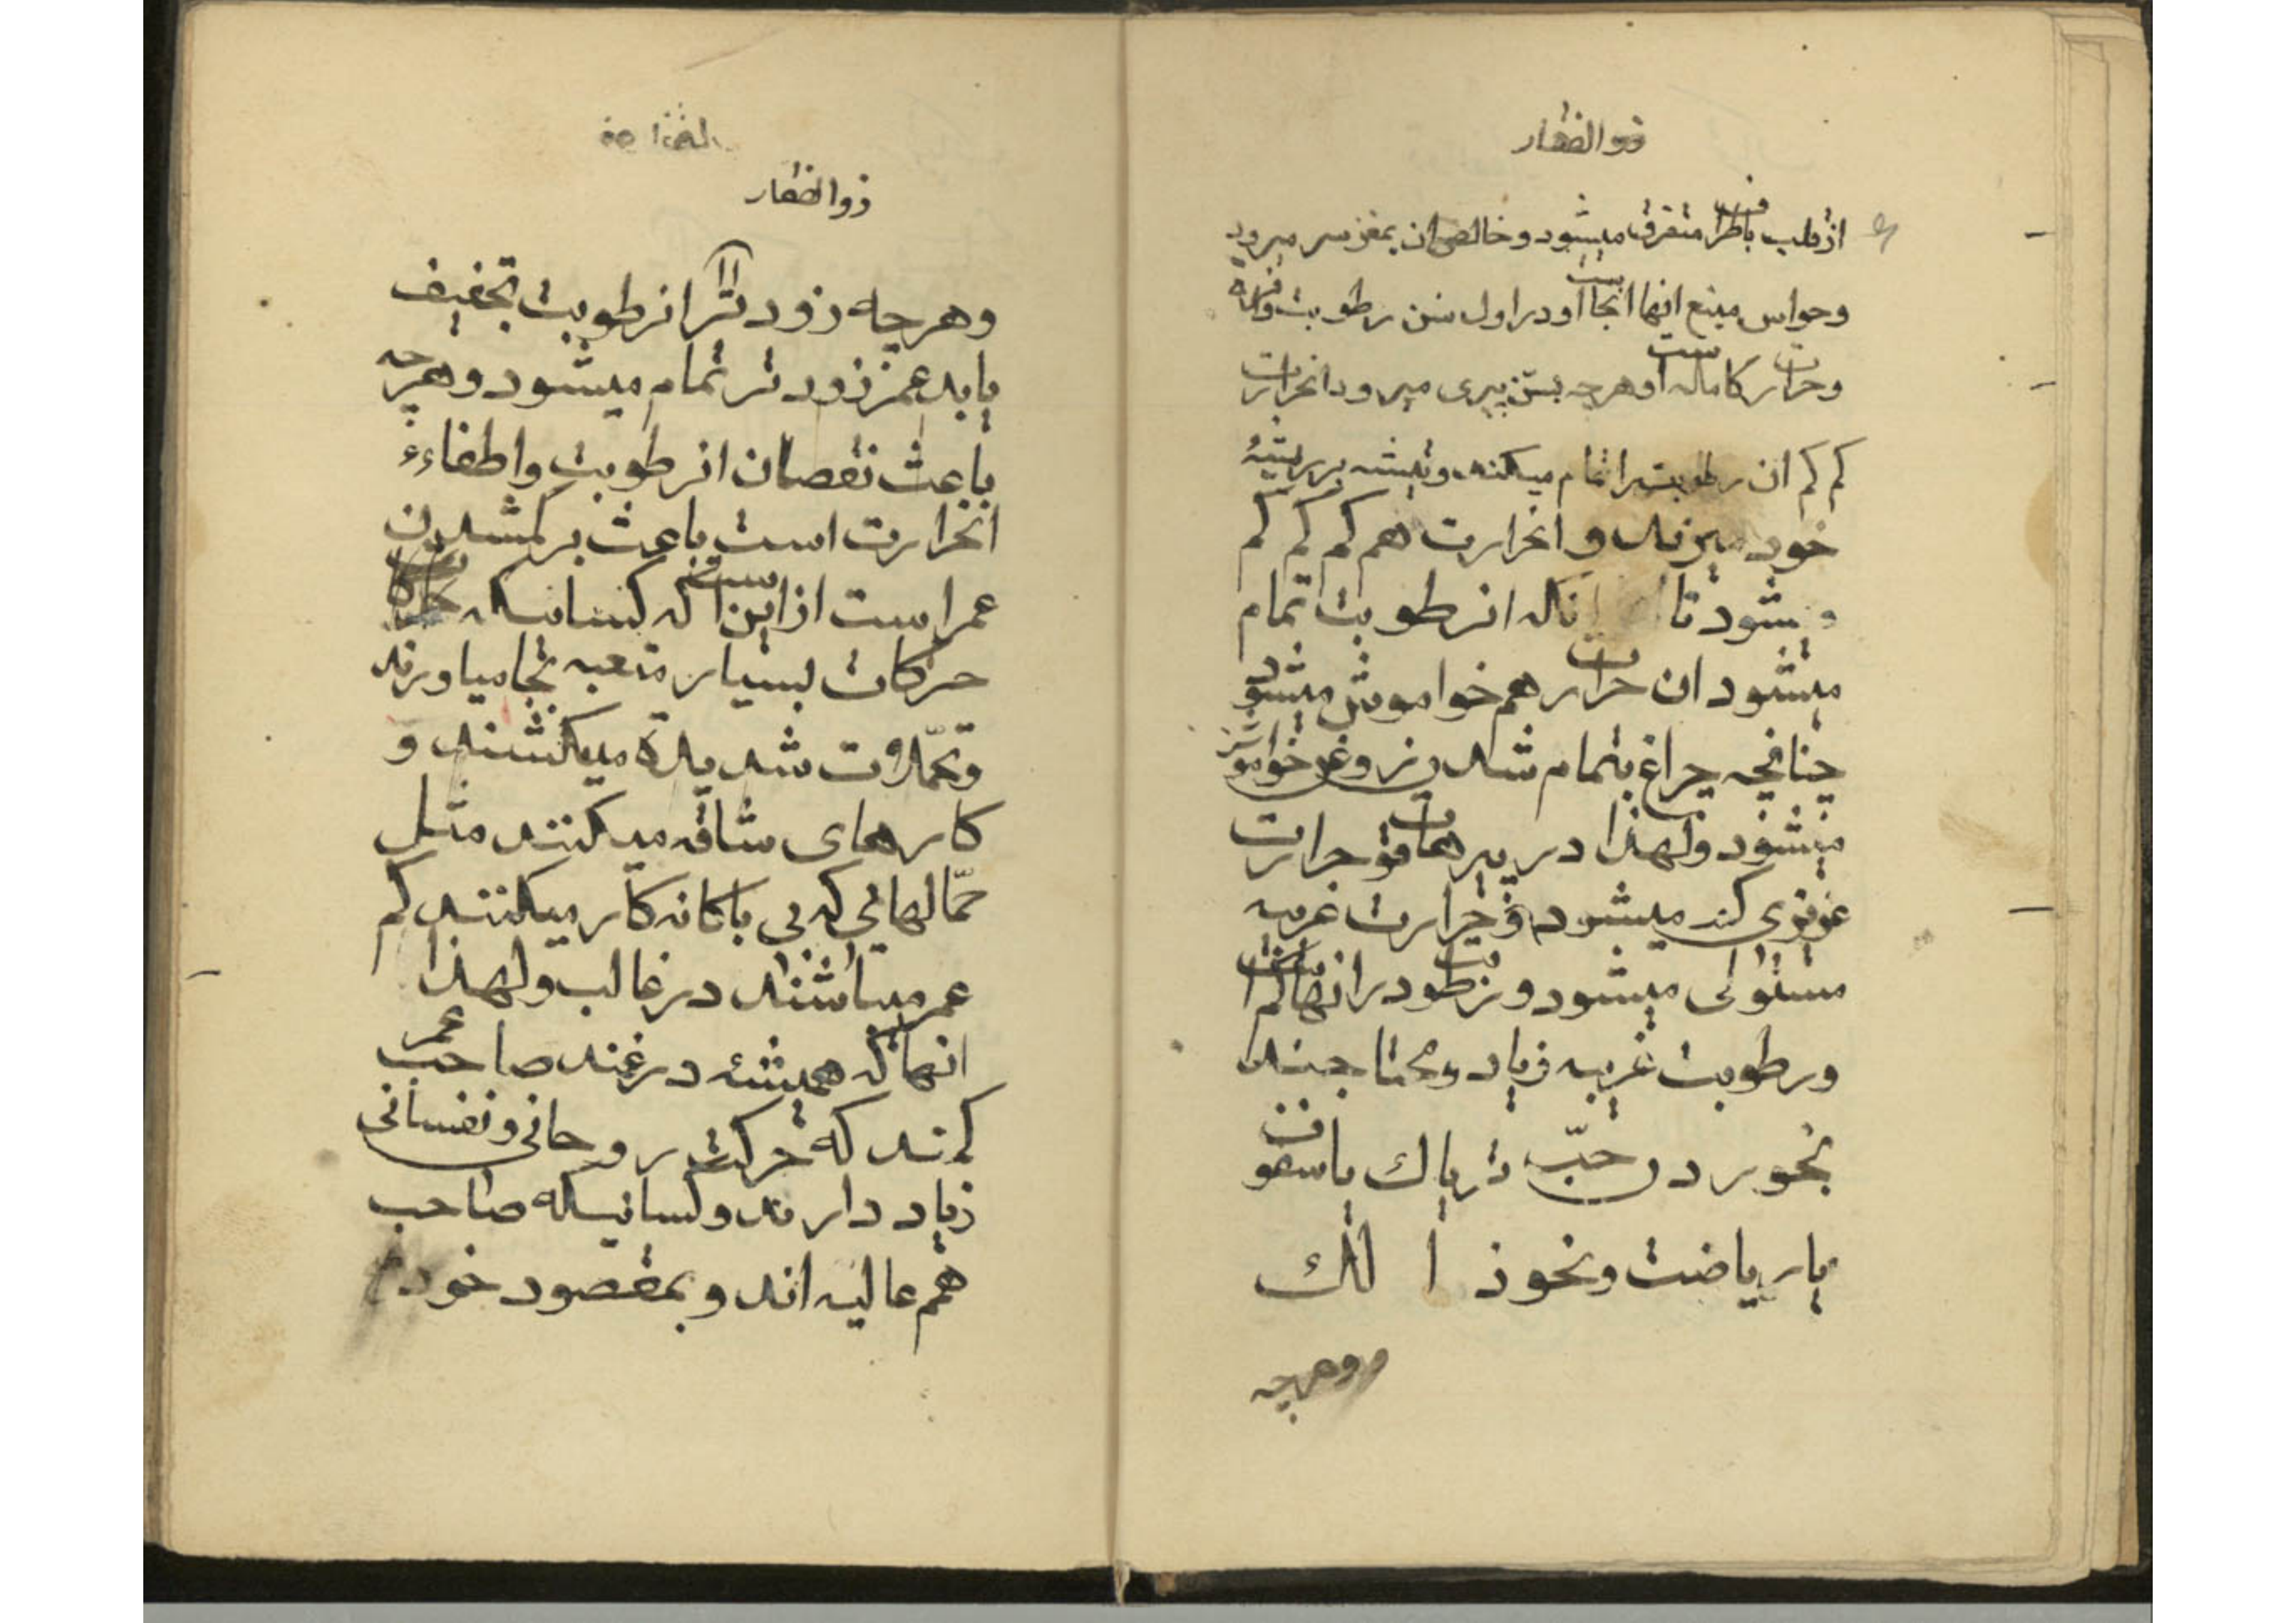 ذو الفقار
از قلب باطراف متفرق میشود و خالص ان بمغز سر میرود
وحواس منبع انها انجا است و در اول سن رطوبت وافره
وحرارت کامله است و هر چه بسن پیری میرود انحرارت
کم کم ان رطوبت را تمام میکند و تیشه بر ریشهٔ
خود میزند و انحرارت هم کم کم کم
میشود تا انکه انرطوبت تمام
میشود ان حرارت هم خواموش میشود
چنانچه چراغ بتمام شدن روغن خواموش
میشود ولهذا در پیرها قوت حرارت
غریزی کند میشود و حرارت غریبه
مستولی میشود و رطوبت در انها کم است
ورطوبت غریبه زیاد و محتاجند
بخوردن حبّ تریاك یا سفوف
یا ریاضت و نحو ذالك
وهرچه
ذوالفقار
وهرچه زودتر انرطوبت تخفیف
یابد عمر زودتر تمام میشود و هر چه
باعث نقصان انرطوبت و اطفاء
انحرارت است باعث بر کمشدن
عمر است از این است که کسانیکه
حرکات بسیار متعبه بجا میاورند
وتحمّلات شدیده میکشند و
کارهای شاقه میکنند مثل
حمّالهائی که بی باکانه کار میکنند کم
عمر میباشند در غالب ولهذا
انها که همیشه در غمند صاحب عمر
کمند که حرکت روحانی و نفسانی
زیاد دارند و کسانیکه صاحب
همم عالیه اند و بمقصود خود